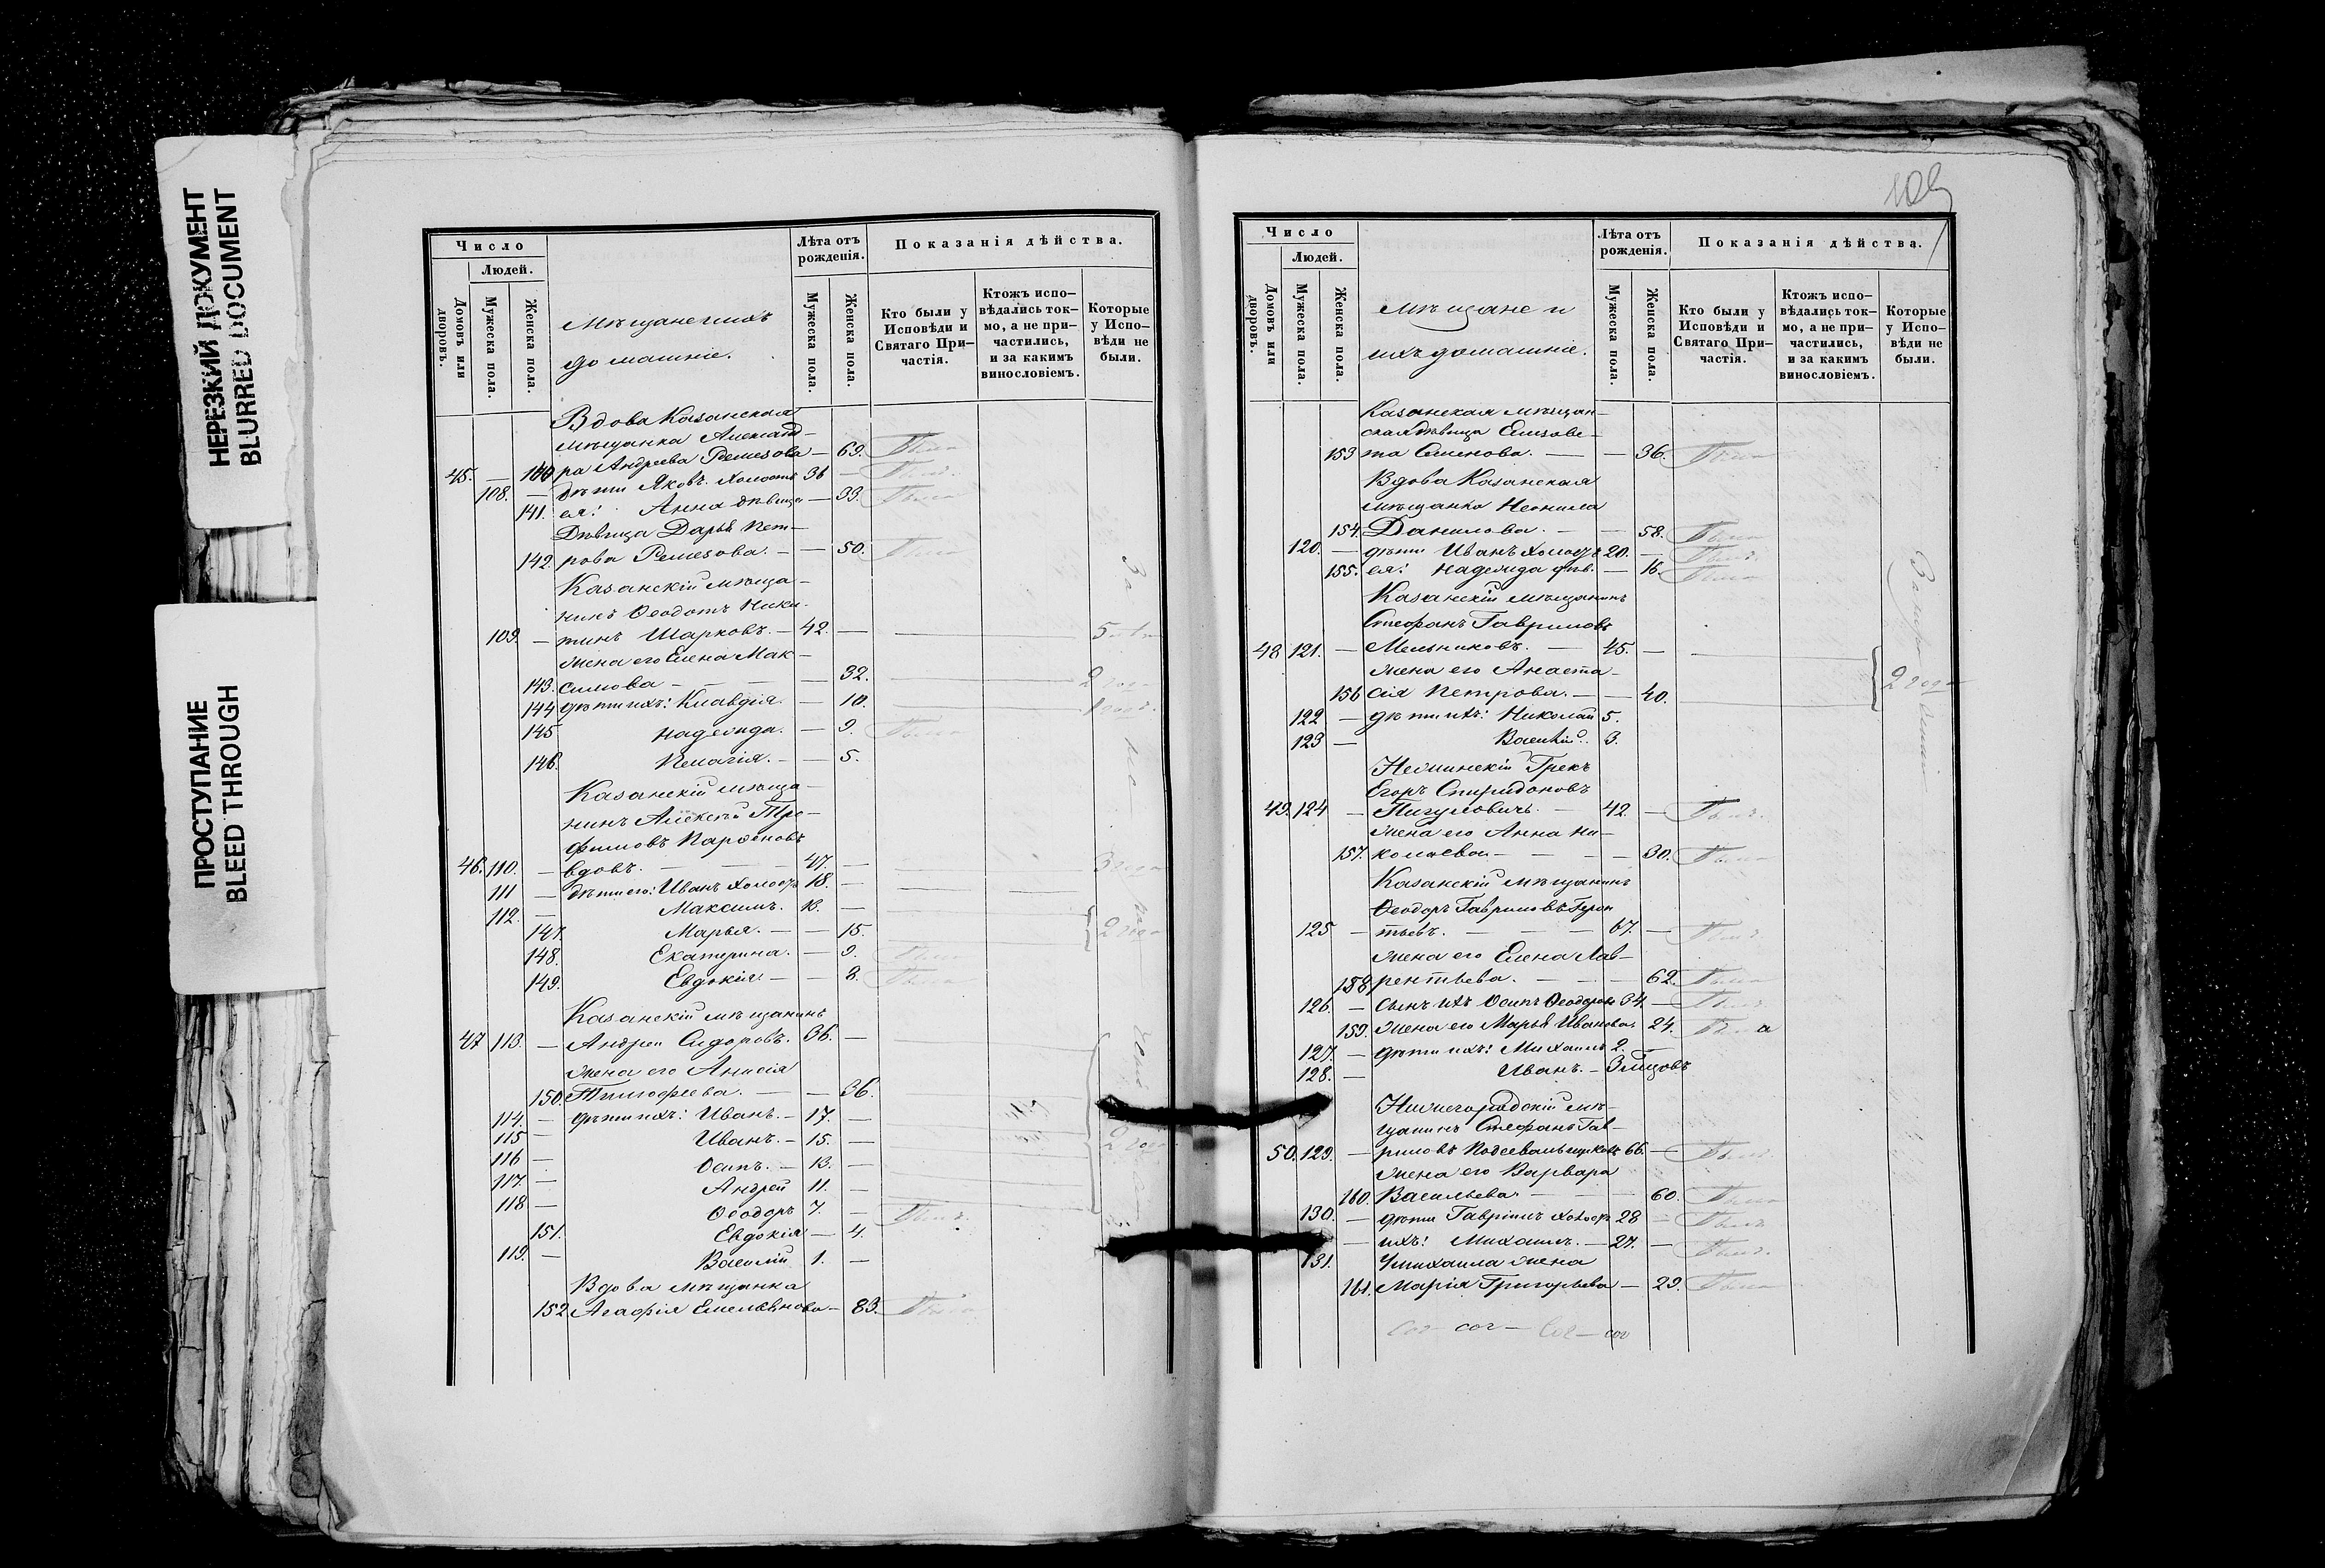 НЕРЕЗКИЙ ДОКУМЕНТ
BLURRED DOCUMENT
ПРОСТУПАНИЕ
BLEED THROUGH
Число
Людей.
Домовъ или дворовъ.
Мужеска пола.
Женска пола.
Мѣщане и ихъ
домашніе.
Лѣта отъ рожденія.
Мужеска пола.
Женска пола.
Показанія дѣйства.
Кто были у Исповѣди и Святаго При-частія.
Ктожъ испо-вѣдались ток-мо, а не при-частились, и за какимъ винословіемъ.
Которые у Испо-вѣди не были.
Вдова Казанская
мѣщанка Александ-
45. — 140 ра Андреева Ремезова — 69. Была
108. — дѣти Яковъ холостъ 36 — Былъ.
141. ея: Анна дѣвица — 33. Была
Дѣвица Дарья Пет-
142. рова Ремезова. — — 50. Была
Казанскій мѣща-
нинъ Ѳеодотъ Ники-
109. — тинъ Шарковъ. — 42. — 5
жена его Елена Мак-
143. симова — — — 32. 2 года
144 дѣти ихъ: Клавдія. — 10. 1 годъ.
145 Надежда. — 9. Была
146. Пелагія. — — 5.
Казанскій мѣща-
нинъ Алексѣй Тро-
фимовъ Парѳеновъ
46. 110. — вдовъ. — 47. — 3 года
111 — дѣти его: Иванъ холостъ 18. —
112. — Максимъ. 13. —
147. Марья. — — 15. 2 года
148. Екатерина. — 9. Была
149. Евдокія. — — 8. Была
Казанскій мѣщанинъ
47 113. — Андрей Сидоровъ. 36. —
жена его Анисія
150. Тимофеева. — — 36.
114. — дѣти ихъ: Иванъ. — 17. —
115 — Иванъ. — 15. — 2 года
116 — Осипъ. — 13. —
117. — Андрей 11. —
118 — Ѳеодоръ 7. — Былъ.
151. Евдокія — 4.
119. — Василій 1. —
Вдова мѣщанка
152 Агафія Емельянова — 83. Была
109
Число
Людей.
Домовъ или дворовъ.
Мужеска пола.
Женска пола.
Мѣщане и
ихъ домашніе.
Лѣта отъ рожденія.
Мужеска пола.
Женска пола.
Показанія дѣйства.
Кто были у Исповѣди и Святаго При-частія.
Ктожъ испо-вѣдались ток-мо, а не при-частились, и за какимъ винословіемъ.
Которые у Испо-вѣди не были.
Казанская мѣщан-
ская дѣвица Елизове-
153 та Семенова. — — 36. Была
Вдова Казанская
мѣщанка Неонила
154. Данилова. — — 58. Была
120. — дѣти Иванъ холостъ 20. — Былъ.
155. ея: Надежда дѣв. — 16. Была
Казанскій мѣщанинъ
Стефанъ Гавриловъ
48 121. — Мельниковъ. — 45. —
жена его Анаста-
156 сія Петрова. — — 40. 2 года
122 — дѣти ихъ: Николай 5.
123 — Василій. 3.
Нежинскій Грекъ
Егоръ Спиридоновъ
49. 124 — Пигулевичъ. — 42. — Былъ.
жена его Анна Ни-
157. колаева — — — 30. Была
Казанскій мѣщанинъ
Ѳеодоръ Гавриловъ Герон
125 — тьевъ. — — 67. — Былъ
жена его Елена Лав-
158 рентьева. — — 62. Была
126. — Сынъ ихъ Осипъ Ѳеодоровъ 34. — Былъ
159. жена его Марья Иванова. 24. Была
127. — дѣти ихъ: Михаилъ 2. —
128. — Иванъ. — 3 мѣсцовъ
Нижегородскій мѣ-
щанинъ Стефанъ Гав-
50. 129. — риловъ Подсевальщиковъ 66. — Былъ
жена его Варвара
160. Васильева. — — 60. Была
130. — дѣти Гавріилъ холостъ 28 — Былъ
— ихъ: Михаилъ. — 27. — Былъ.
131. У Михаила жена
161. Марія Григорьева — 29. Была